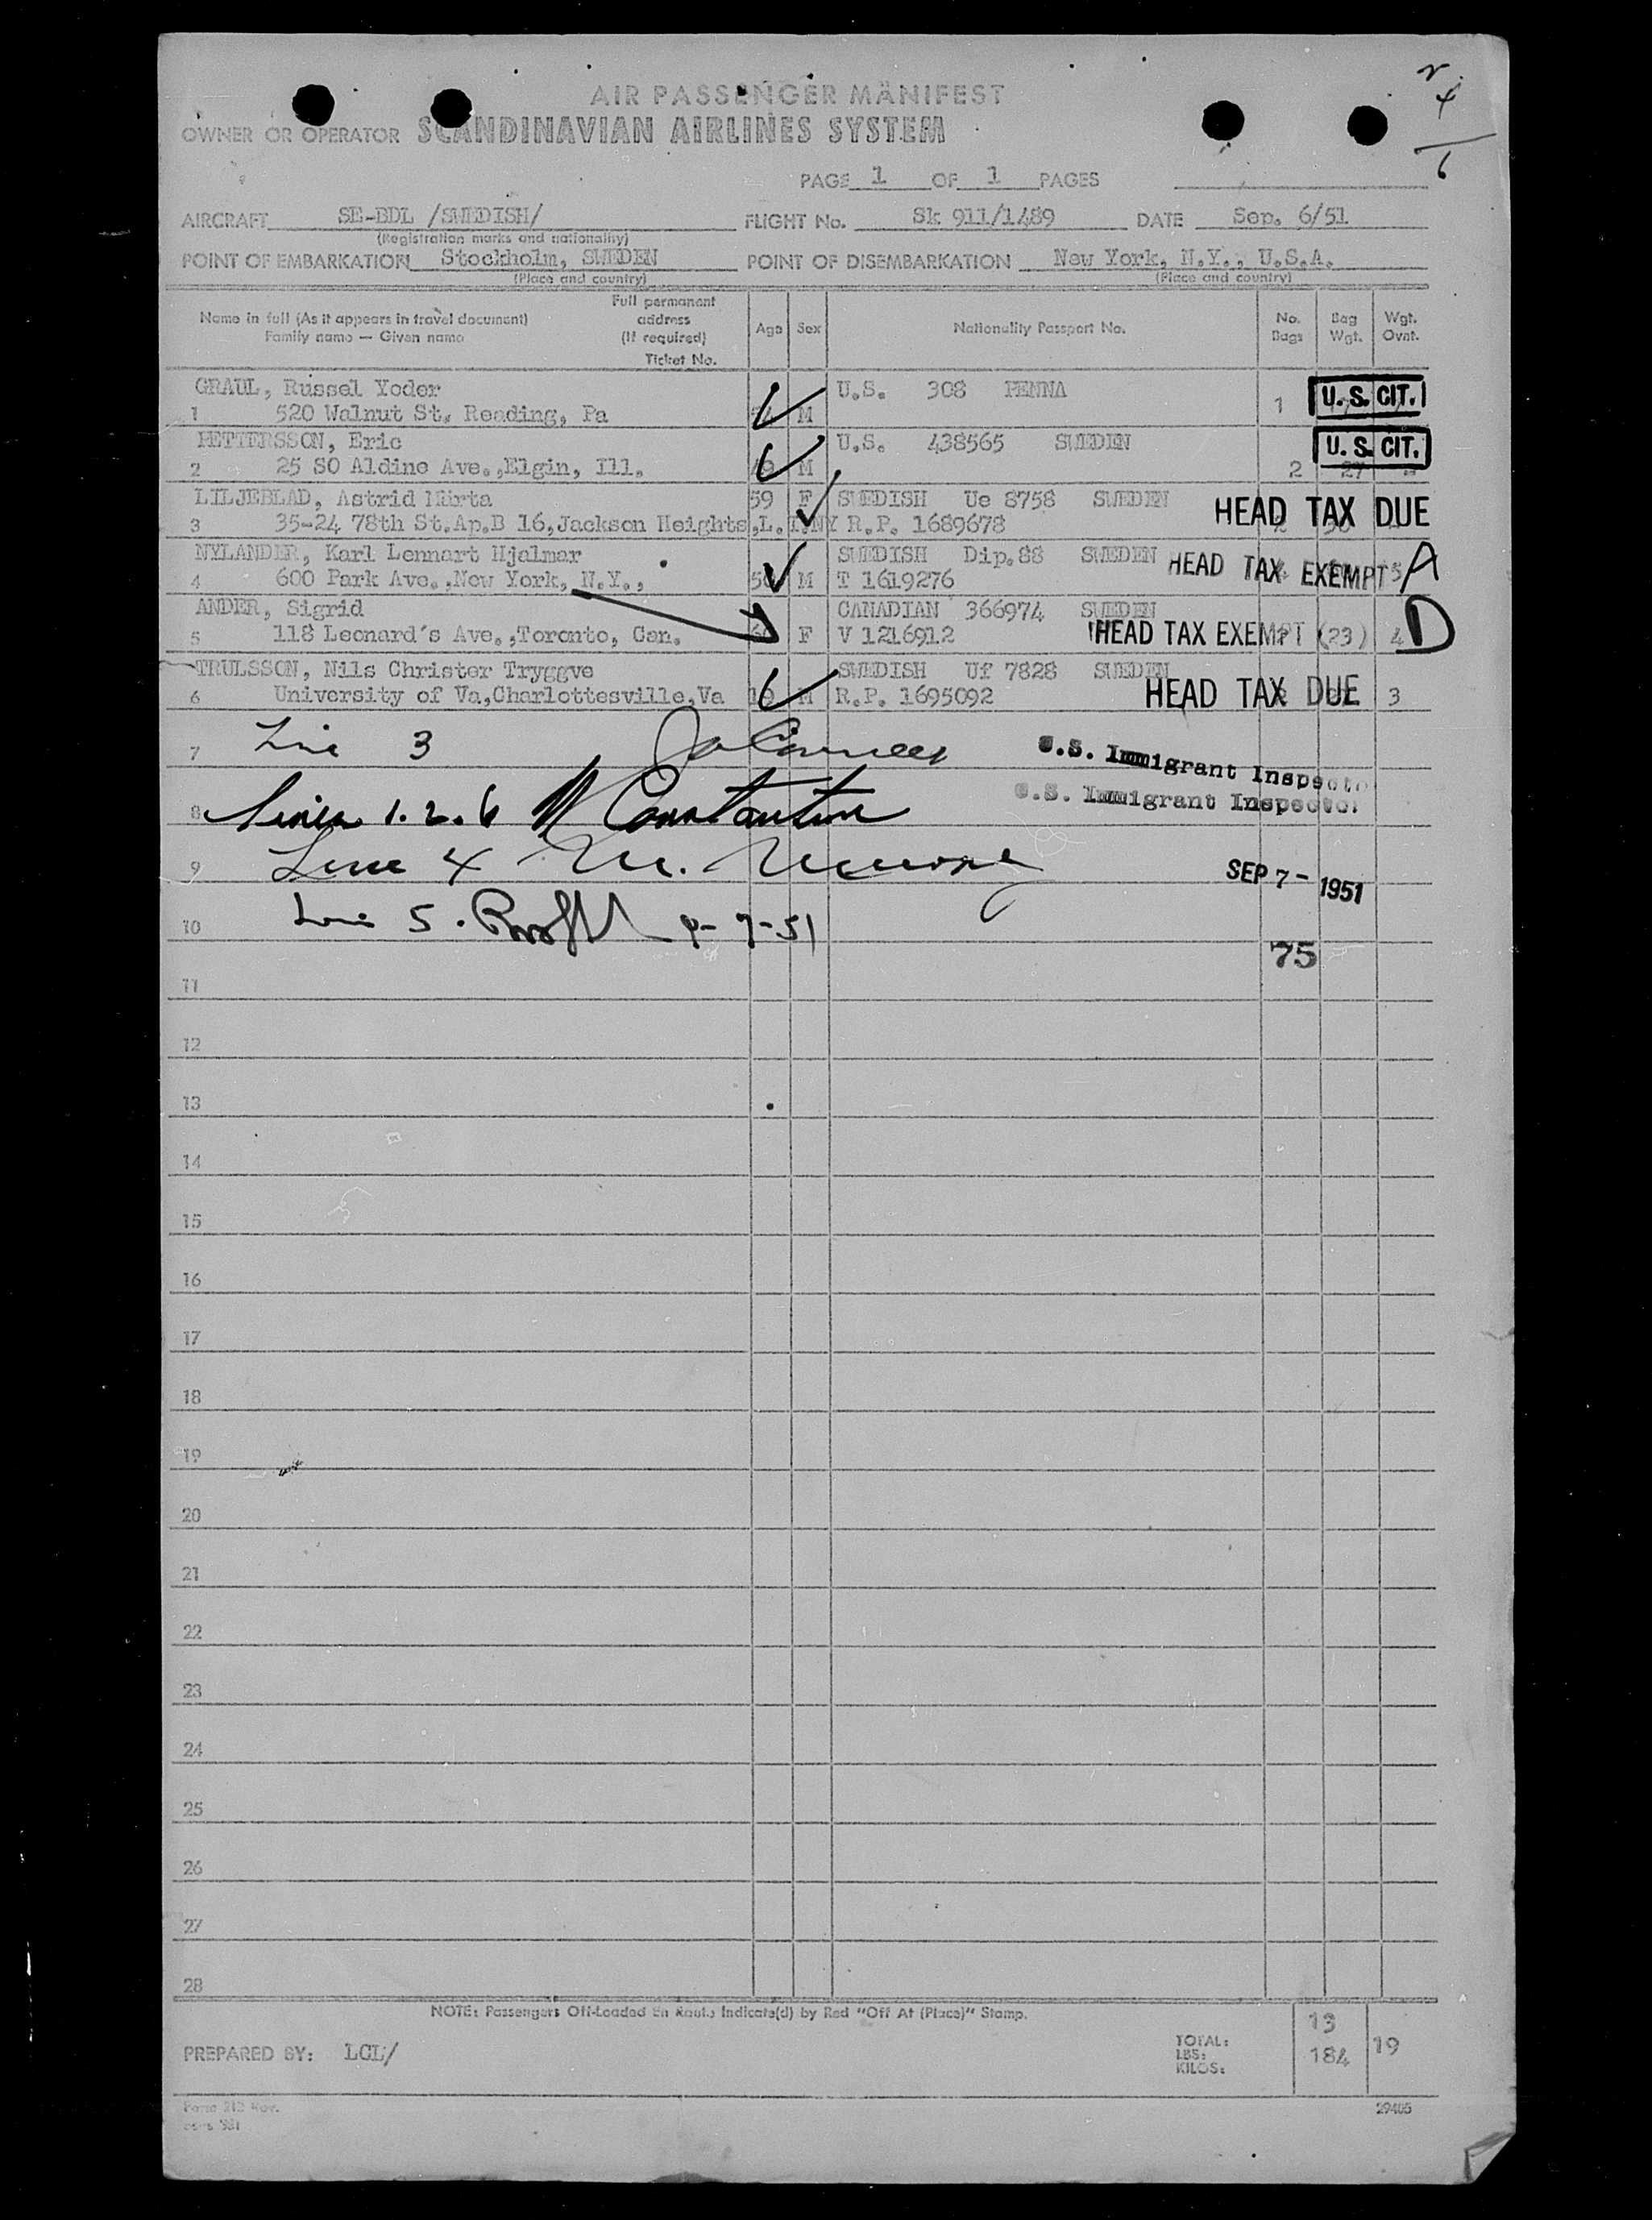 2
4
6
AIR PASSENGER MANIFEST
OWNER OR OPERATOR SCANDINAVIAN AIRLINES SYSTEM
PAGE 1 OF 1 PAGES
AIRCRAFT SE-BDL /SWEDISH/ FLIGHT No. Sk 911/1489 DATE Sep. 6/51
(Registration marks and nationality)
POINT OF EMBARKATION Stockholm, SWEDEN POINT OF DISEMBARKATION New York, N.Y., U.S.A.
(Place and country) (Place and country)
Name in full (As it appears in travel document) Full permanent address (If required) Age Sex Nationality Passport No. No. Bags Bag Wgt. Wgt. Ovnt.
Family name — Given name Ticket No.
GRAUL, Russel Yoder U.S. 308 PENNA U.S. CIT.
1 520 Walnut St. Reading, Pa M 1
PETTERSSON, Eric U.S. 438565 SWEDEN U.S. CIT.
2 25 SO Aldine Ave.,Elgin, Ill. M 2 27
LILJEBLAD, Astrid Märta 59 F SWEDISH Ue 8758 SWEDEN HEAD TAX DUE
3 35-24 78th St.Ap.B 16,Jackson Heights,L.I.NY R.P. 1689678
NYLANDER, Karl Lennart Hjalmar SWEDISH Dip.88 SWEDEN HEAD TAX EXEMPT A
4 600 Park Ave.,New York, N.Y., M T 1619276 5
ANDER, Sigrid CANADIAN 366974 SWEDEN
5 118 Leonard's Ave.,Toronto, Can. F V 1216912 HEAD TAX EXEMPT (23) 4 D
TRULSSON, Nils Christer Tryggve SWEDISH Uf 7828 SWEDEN
6 University of Va,Charlottesville,Va 19 M R.P. 1695092 HEAD TAX DUE 3
7 Line 3 U.S. Immigrant Inspector
U.S. Immigrant Inspector
8 Lines 1.2.6 M Constantine
9 Line 4 SEP 7 - 1951
10 Line 5. 9-7-51
75
11
12
13
14
15
16
17
18
19
20
21
22
23
24
25
26
27
28
NOTE: Passengers Off-Loaded En Route Indicate(d) by Red "Off At (Place)" Stamp.
PREPARED BY: LCL/ TOTAL: 13
LBS: 184 19
KILOS:
Form 212 Rev.
29405